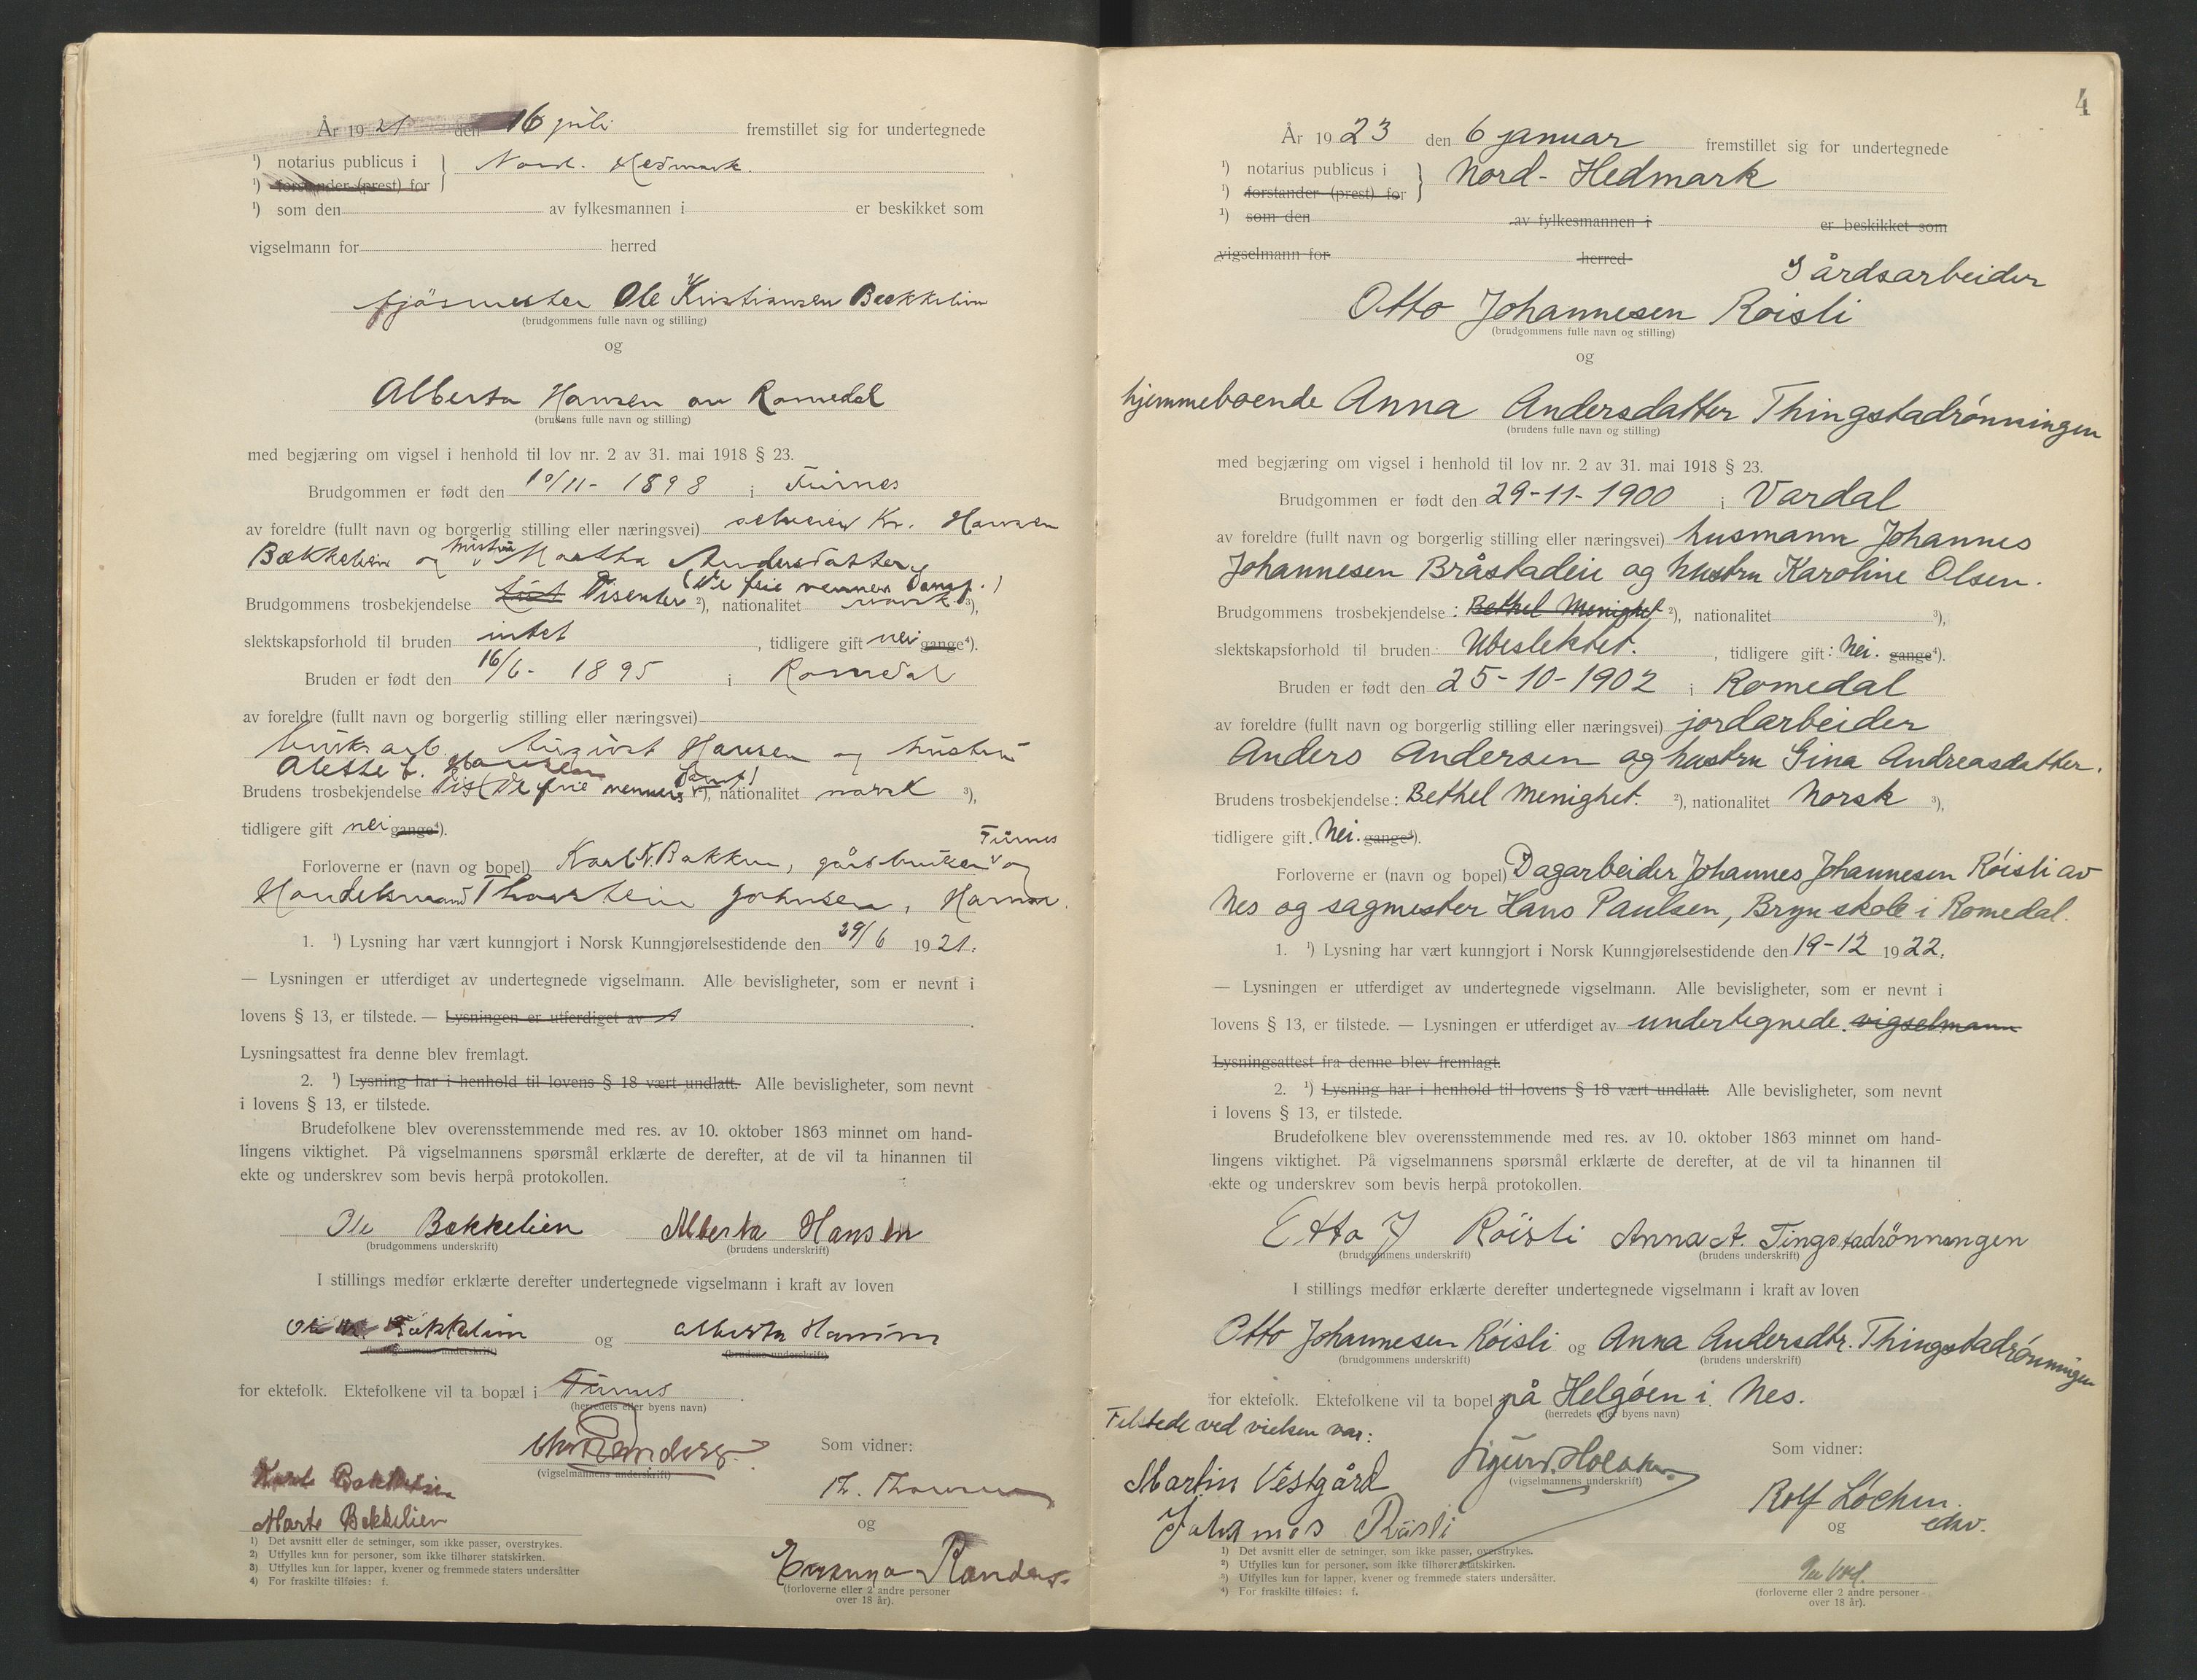 År 19 21 den 16 juli fremstillet sig for undertegnede
¹) notarius publicus i } Nord. Hedmark.
¹) forstander (prest) for
¹) som den av fylkesmannen i er beskikket som
vigselmann for herred
fjösmester Ole Kristiansen Bækkelien
(brudgommens fulle navn og stilling)
og
Alberta Hansen av Romedal
(brudens fulle navn og stilling)
med begjæring om vigsel i henhold til lov nr. 2 av 31. mai 1918 § 23.
Brudgommen er født den 10/11- 1898 i Furnes
av foreldre (fullt navn og borgerlig stilling eller næringsvei) selveier Kr. Hansen
Bækkelien og hustru Martha Andersdatter
(De frie venners samf.)
Brudgommens trosbekjendelse Disenter ²), nationalitet norsk ³),
slektskapsforhold til bruden intet , tidligere gift nei gange⁴).
Bruden er født den 16/6- 1895 i Romedal
av foreldre (fullt navn og borgerlig stilling eller næringsvei)
bruksarb. August Hansen og hustru
Alette f. Hansen
Brudens trosbekjendelse Dis (De frie venners samf) ²), nationalitet norsk ³),
tidligere gift nei gange⁴).
Furnes
Forloverne er (navn og bopel) Karl K. Bakken, gårdbruker og
Handelsmand Thorstein Johnsen, Hamar.
1. ¹) Lysning har vært kunngjort i Norsk Kunngjørelsestidende den 29/6 1921.
— Lysningen er utferdiget av undertegnede vigselmann. Alle bevisligheter, som er nevnt i
lovens § 13, er tilstede. — Lysningen er utferdiget av
Lysningsattest fra denne blev fremlagt.
2. ¹) Lysning har i henhold til lovens § 18 vært undlatt. Alle bevisligheter, som nevnt
i lovens § 13, er tilstede.
Brudefolkene blev overensstemmende med res. av 10. oktober 1863 minnet om hand-
lingens viktighet. På vigselmannens spørsmål erklærte de derefter, at de vil ta hinannen til
ekte og underskrev som bevis herpå protokollen.
Ole Bækkelien Alberta Hansen
(brudgommens underskrift) (brudens underskrift)
I stillings medfør erklærte derefter undertegnede vigselmann i kraft av loven
Ole Bækkelien og Alberta Hansen
(brudgommens underskrift) (brudens underskrift)
for ektefolk. Ektefolkene vil ta bopæl i Furnes
(herredets eller byens navn)
(vigselmannens underskrift)
Som vidner:
Karl Bækkelien
Marte Bekkelien
og
Randers
(forloverne eller 2 andre personer
over 18 år).
1) Det avsnitt eller de setninger, som ikke passer, overstrykes.
2) Utfylles kun for personer, som ikke tilhører statskirken.
3) Utfylles kun for lapper, kvener og fremmede staters undersåtter
4) For fraskilte tilføies: f.
4
År 1923 den 6 januar fremstillet sig for undertegnede
¹) notarius publicus i } Nord-Hedmark
¹) forstander (prest) for
¹) som den av fylkesmannen i er beskikket som
vigselmann for herred
Gårdsarbeider
Otto Johannesen Röisli
(brudgommens fulle navn og stilling)
og
hjemmeboende Anna Andersdatter Thingstadrönningen
(brudens fulle navn og stilling)
med begjæring om vigsel i henhold til lov nr. 2 av 31. mai 1918 § 23.
Brudgommen er født den 29-11-1900 i Vardal
av foreldre (fullt navn og borgerlig stilling eller næringsvei) husmann Johannes
Johannesen Bråstadeie og hustru Karoline Olsen.
Brudgommens trosbekjendelse : Bethel Menighet ²), nationalitet ³),
slektskapsforhold til bruden : Ubeslektet. , tidligere gift : Nei. gange⁴).
Bruden er født den 25-10-1902 i Romedal
av foreldre (fullt navn og borgerlig stilling eller næringsvei) jordarbeider
Anders Andersen og hustru Gina Andreasdatter.
Brudens trosbekjendelse : Bethel Menighet. ²), nationalitet Norsk ³),
tidligere gift. Nei. gange⁴).
Forloverne er (navn og bopel) Dagarbeider Johannes Johannesen Röisli av
Nes og sagmester Hans Paulsen, Bryn skole i Romedal.
1. ¹) Lysning har vært kunngjort i Norsk Kunngjørelsestidende den 19-12 1922.
— Lysningen er utferdiget av undertegnede vigselmann. Alle bevisligheter, som er nevnt i
lovens § 13, er tilstede. — Lysningen er utferdiget av undertegnede. vigselmann
Lysningsattest fra denne blev fremlagt.
2. ¹) Lysning har i henhold til lovens § 18 vært undlatt. Alle bevisligheter, som nevnt
i lovens § 13, er tilstede.
Brudefolkene blev overensstemmende med res. av 10. oktober 1863 minnet om hand-
lingens viktighet. På vigselmannens spørsmål erklærte de derefter, at de vil ta hinannen til
ekte og underskrev som bevis herpå protokollen.
Otto J Röisli Anna A. Tingstadrönningen
(brudgommens underskrift) (brudens underskrift)
I stillings medfør erklærte derefter undertegnede vigselmann i kraft av loven
Otto Johannesen Röisli og Anna Andersdtr. Thingstadrönningen
(brudgommens underskrift) (brudens underskrift)
for ektefolk. Ektefolkene vil ta bopel på Helgöen i Nes.
(herredets eller byens navn)
Tilstede ved vielsen var:
Som vidner:
Martin Vestgård
Sigurd
(vigselmannens underskrift)
Rolf Löchen
Johannes Röisli
og
(forloverne eller 2 andre personer
over 18 år).
¹) Det avsnitt eller de setninger, som ikke passer, overstrykes.
²) Utfylles kun for personer, som ikke tilhører statskirken.
³) Utfylles kun for lapper, kvener og fremmede staters undersåtter.
⁴) For fraskilte tilføies: f.